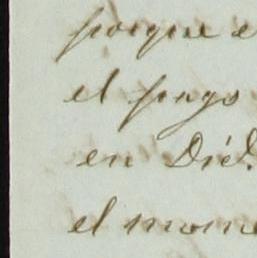 porque e
el pago
en Dic.
el mome